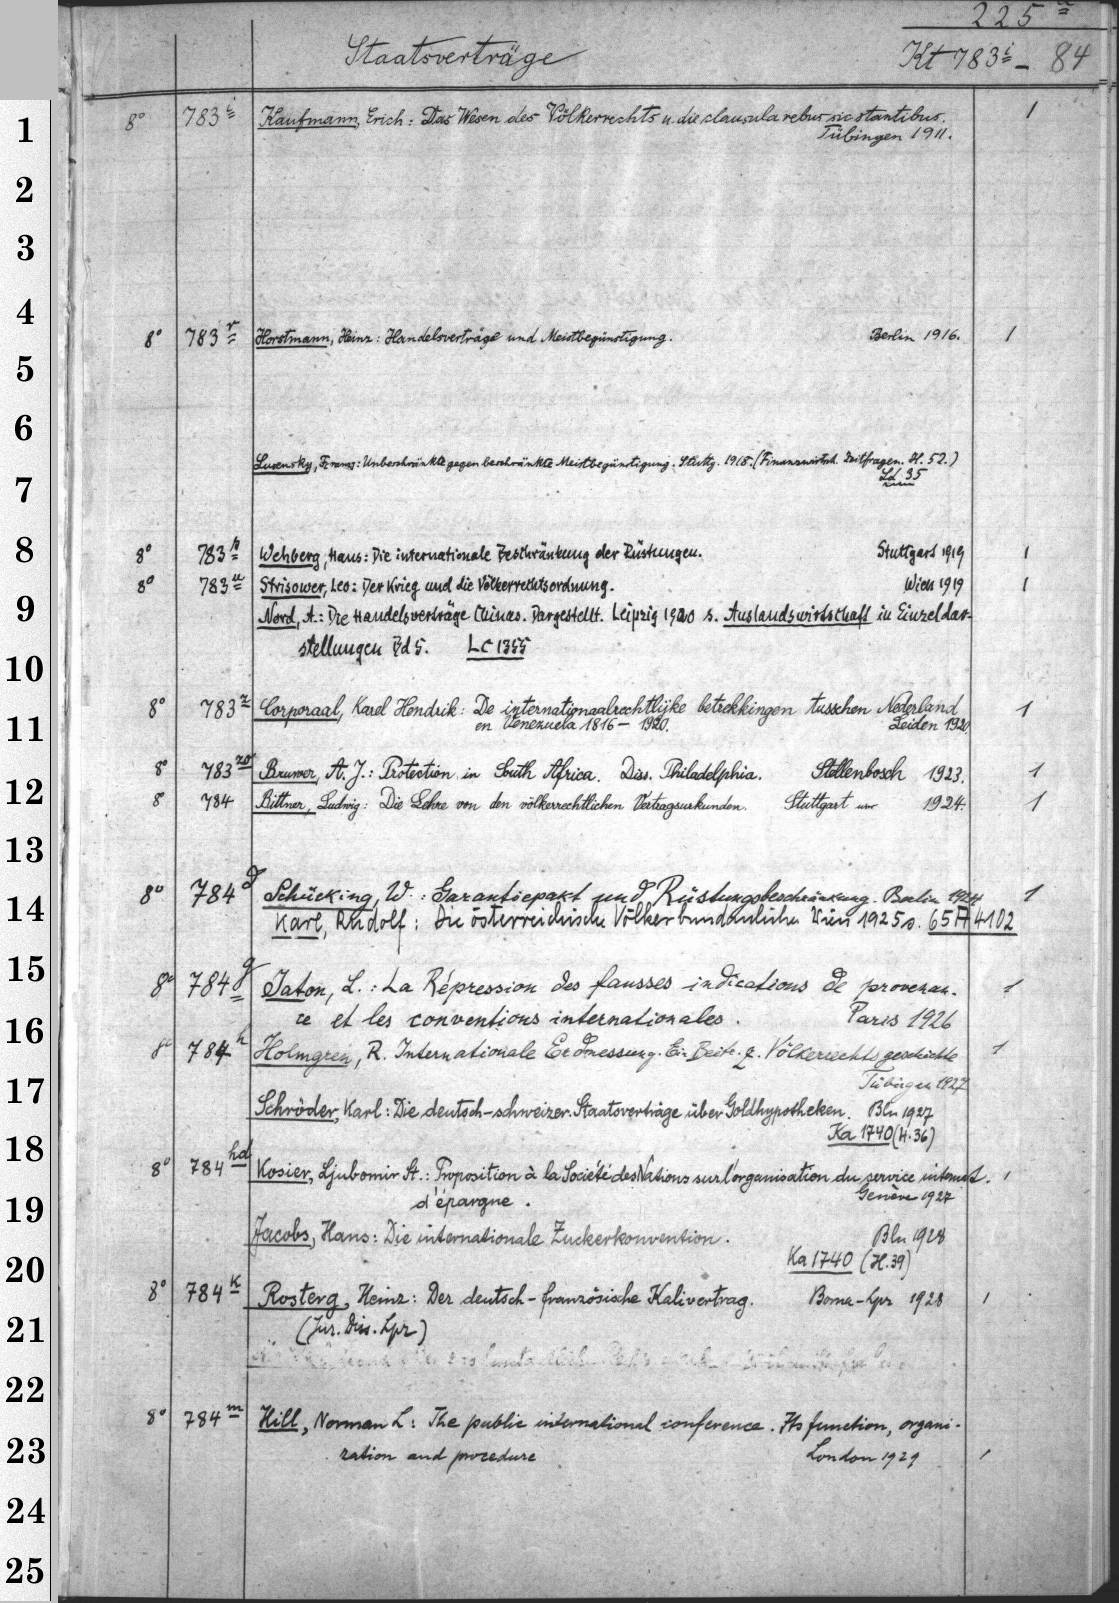 225 a
Staatsverträge Kt 783 i - 84
1 8° 783 i Kaufmann, Erich: Das Wesen des Völkerrechts u. die clausula rebus sic stantibus. 1
Tübingen 1911.
2
3
4
8° 783 r Horstmann, Heinz: Handelsverträge und Meistbegünstigung. Berlin 1916. 1
5
6
Lusensky, Franz: Unbeschränkte gegen beschränkte Meistbegünstigung. Stuttg. 1918. (Finanzwirtsch. Zeitfragen. H. 52.)
7 Ld 35
8 8° 783 Wehberg, Hans: Die internationale Beschränkung der Rüstungen. Stuttgart 1919 1
8° 783 u Strisower, Leo: Der Krieg und die Völkerrechtsordnung. Wien 1919 1
9 Nord, A.: Die Handelsverträge Chinas. Dargestellt. Leipzig 1920 s. Auslandswirtschaft in Einzeldar-
stellungen Bd 5. LC 1355
10
8° 783 z Corporaal, Karel Hendrik: De internationaalrechtlijke betrekkingen tusschen Nederland 1
11 en Venezuela 1816 - 1920. Leiden 1920
8° 783 Bruwer, A. J.: Protection in South Africa. Diss. Philadelphia. Stellenbosch 1923. 1
12 8 784 Bittner, Ludwig: Die Lehre von den völkerrechtlichen Vertragsurkunden. Stuttgart usw 1924. 1
13
8° 784 d Schücking, W.: Garantiepakt und Rüstungsbeschränkung. Berlin 1924 1
14 Karl, Rudolf: Die österreichische Völkerbundanleihe Wien 1925 s. 65 A 4102
15 8° 784 g Taton, L.: La Répression des fausses indications de provenan- 1
ce et les conventions internationales. Paris 1926
16 8° 784 h Holmgren, R. Internationale Erdmessung. Ein Beitr. z. Völkerrechtsgeschichte 1
Tübingen 1927
17 Schröder, Karl: Die deutsch-schweizer. Staatsverträge über Goldhypotheken. Bln 1927
Ka 1740 (H. 36)
18 8° 784 hd Kosier, Ljubomir St.: Proposition à la Société des Nations sur l'organisation du service internat. 1
19 d'épargne. Genève 1927
Jacobs, Hans: Die internationale Zuckerkonvention. Bln 1928
20 Ka 1740 (H. 39)
8° 784 k Rosterg, Heinz: Der deutsch-französische Kalivertrag. Borna-Lpz 1928 1
21 (Jur. Diss. Lpz)
22
8° 784 m Hill, Norman L: The public international conference. Its function, organi-
23 zation and procedure London 1929 1
24
25